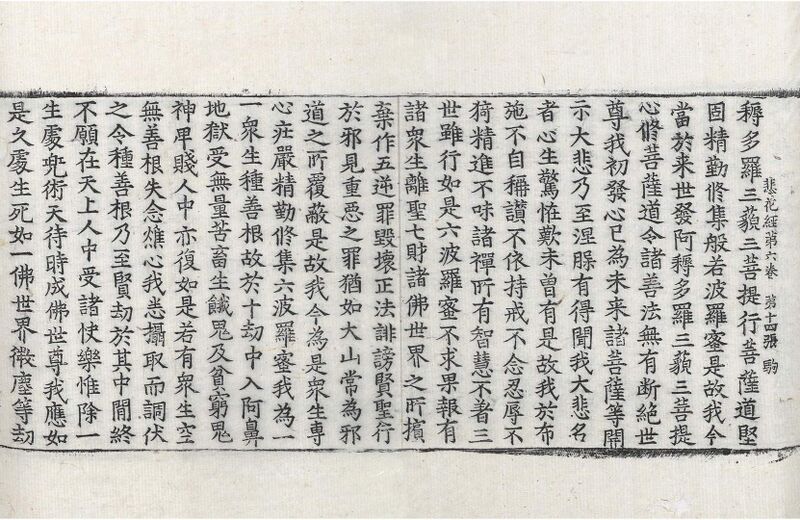 悲花經第六卷 第十四張 駒
耨多羅三藐三菩提行菩薩道堅
固精勤修集般若波羅蜜是故我今
當於来世發阿耨多羅三藐三菩提
心修菩薩道令諸善法無有断絶世
尊我初發心已為未来諸菩薩等開
示大悲乃至涅槃有得聞我大悲名
者心生驚怪歎未曾有是故我於布
施不自稱讃不依持戒不念忍辱不
猗精進不味諸禪所有智慧不著三
世雖行如是六波羅蜜不求果報有
諸衆生離聖七財諸佛世界之所擯
棄作五逆罪毀壞正法誹謗賢聖行
於邪見重惡之罪猶如大山常為邪
道之所覆蔽是故我今為是衆生專
心莊嚴精勤修集六波羅蜜我為一
一衆生種善根故於十劫中入阿鼻
地獄受無量苦畜生餓鬼及貧窮鬼
神卑賤人中亦復如是若有衆生空
無善根失念燋心我悉攝取而調伏
之令種善根乃至賢劫於其中間終
不願在天上人中受諸快樂惟除一
生處兜術天待時成佛世尊我應如
是久處生死如一佛世界微塵等劫